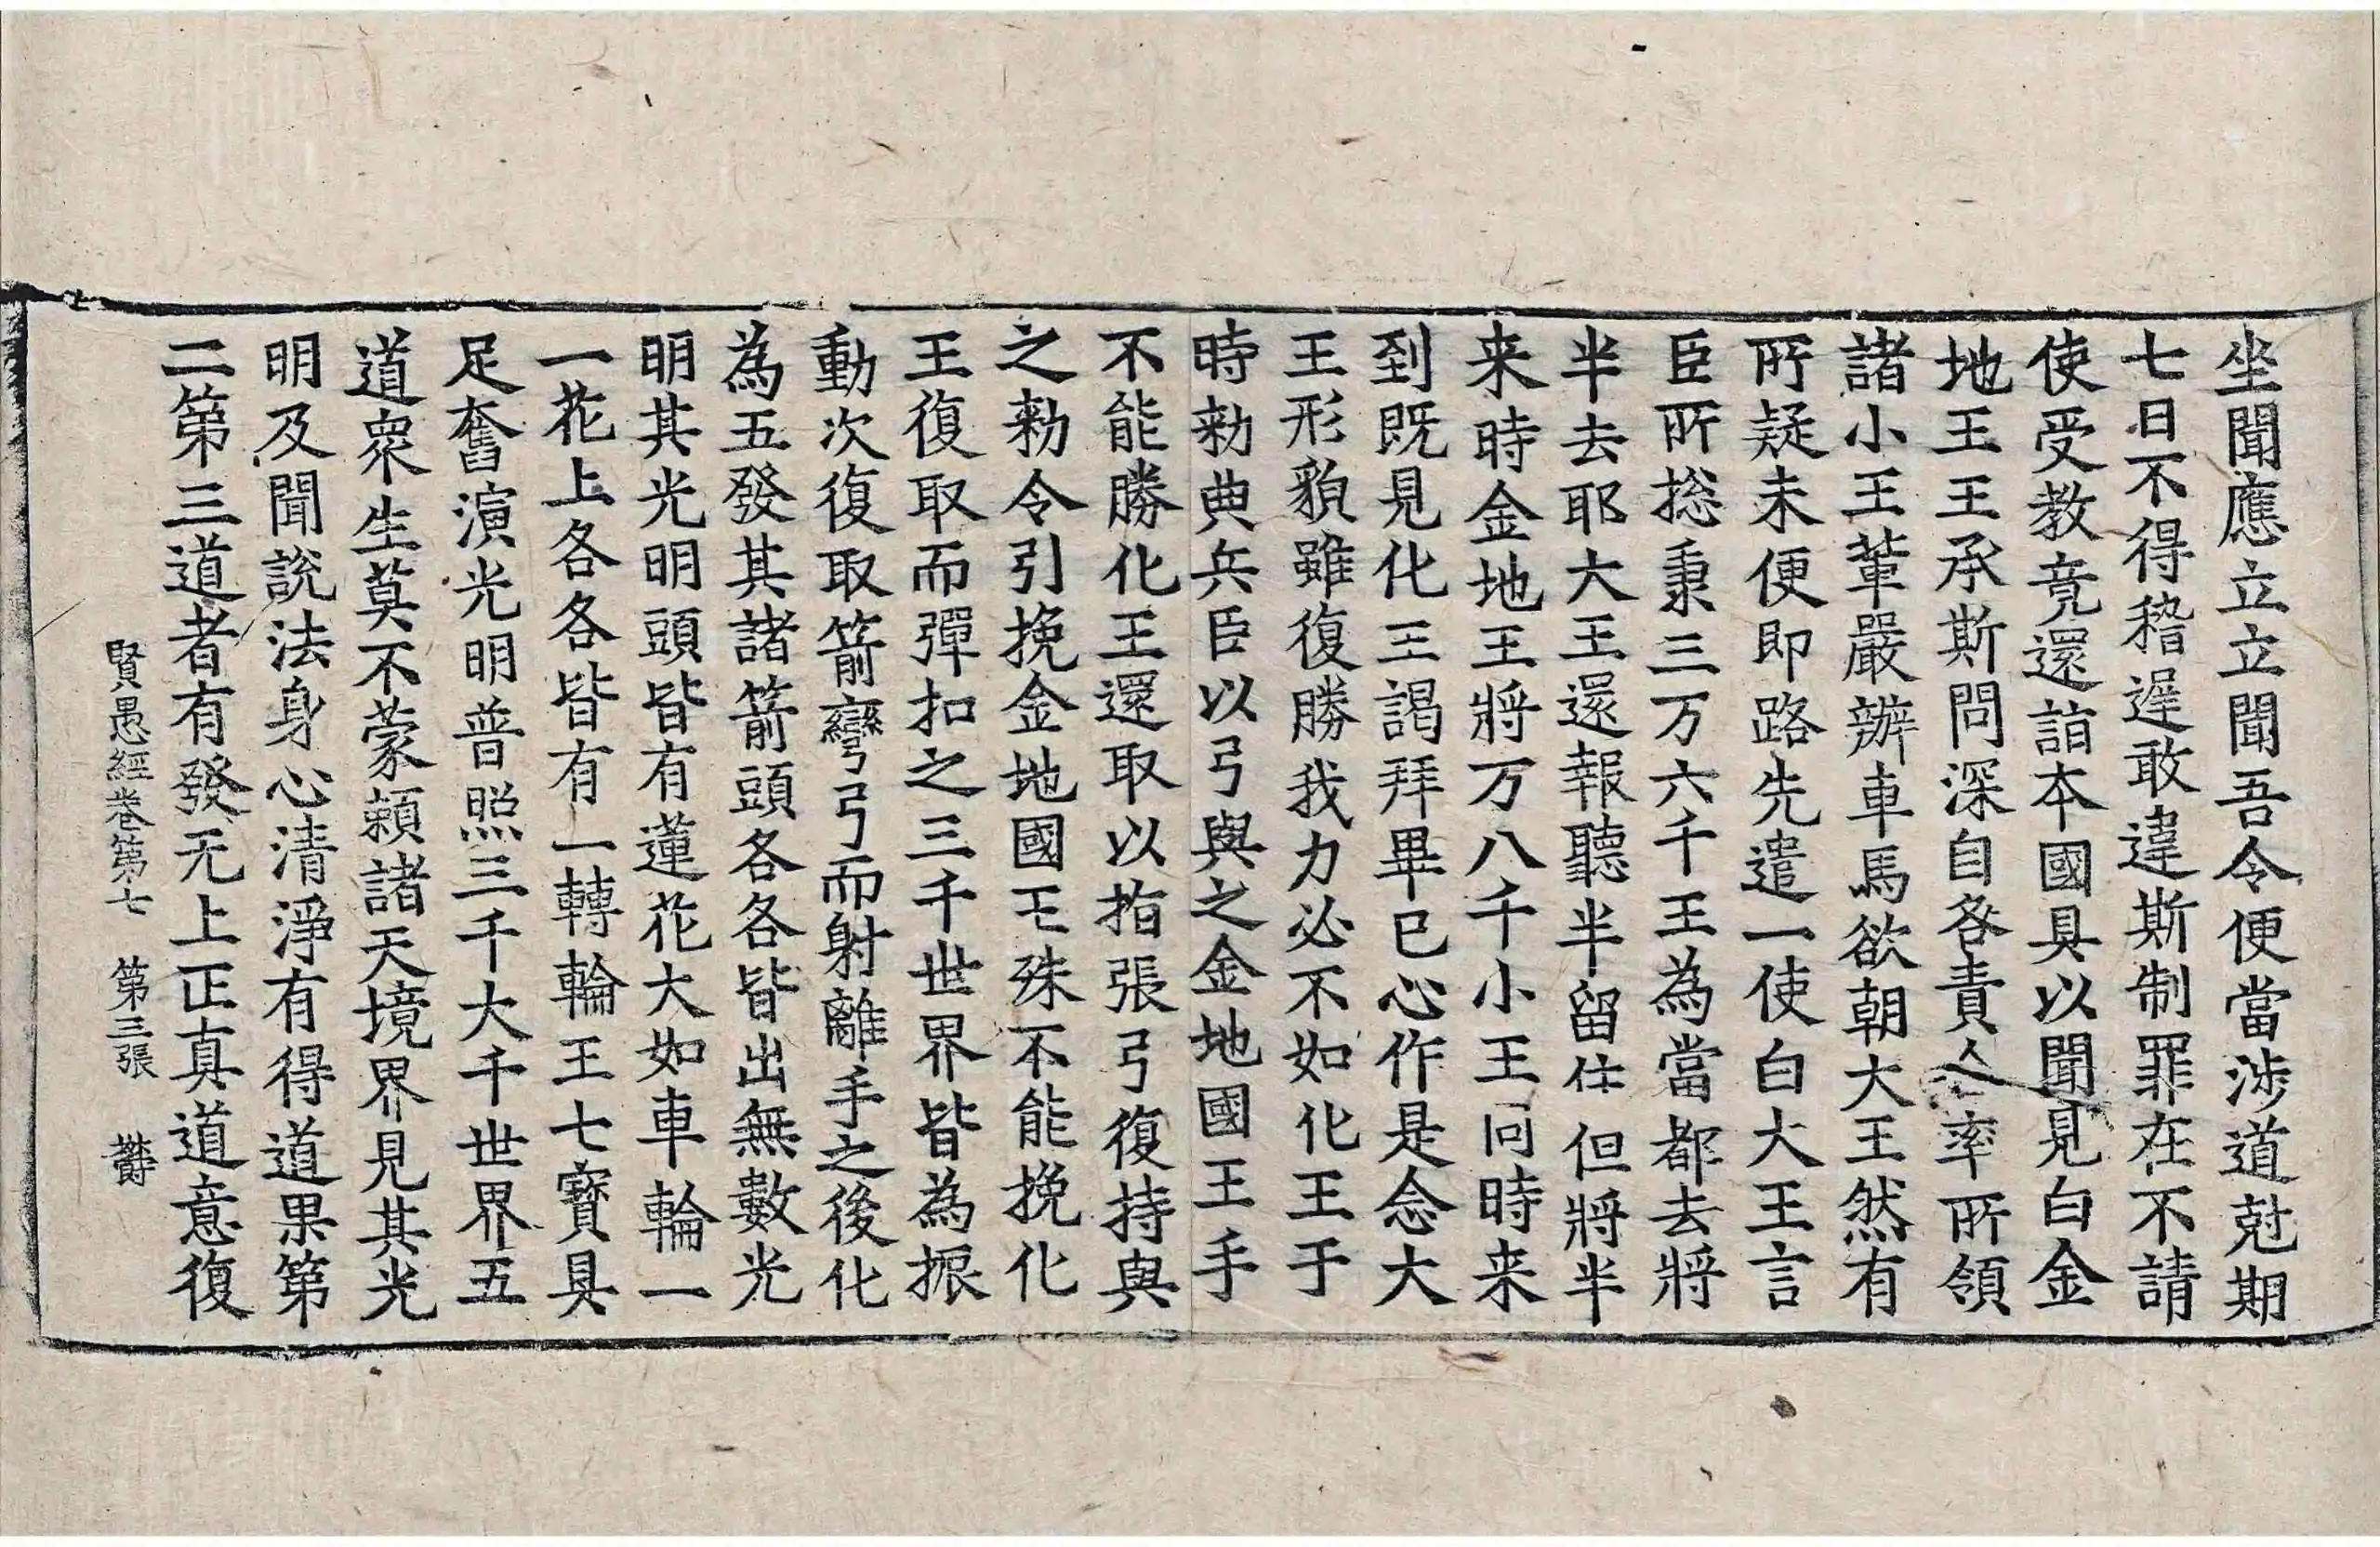 坐聞應立立聞吾令便當涉道尅期
七日不得稽遟敢違斯制罪在不請
使受教竟還詣本國具以聞見白金
地王王承斯問深自咎責亼率所領
諸小王輩嚴辦車馬欲朝大王然有
所疑未便即路先遣一使白大王言
臣所捴秉三万六千王為當都去將
半去耶大王還報聽半留住但將半
来時金地王將万八千小王同時来
到既見化王謁拜畢已心作是念大
王形貌雖復勝我力必不如化王于
時勑典兵臣以弓與之金地國王手
不能勝化王還取以指張弓復持與
之勑令引挽金地國王殊不能挽化
王復取而彈扣之三千世界皆為振
動次復取箭彎弓而射離手之後化
為五發其諸箭頭各各皆出無數光
明其光明頭皆有蓮花大如車輪一
一花上各各皆有一轉輪王七寶具
足奮演光明普照三千大千世界五
道衆生莫不蒙賴諸天境界見其光
明及聞說法身心清淨有得道果第
二第三道者有發无上正真道意復
賢愚經卷第七 第三張 欝